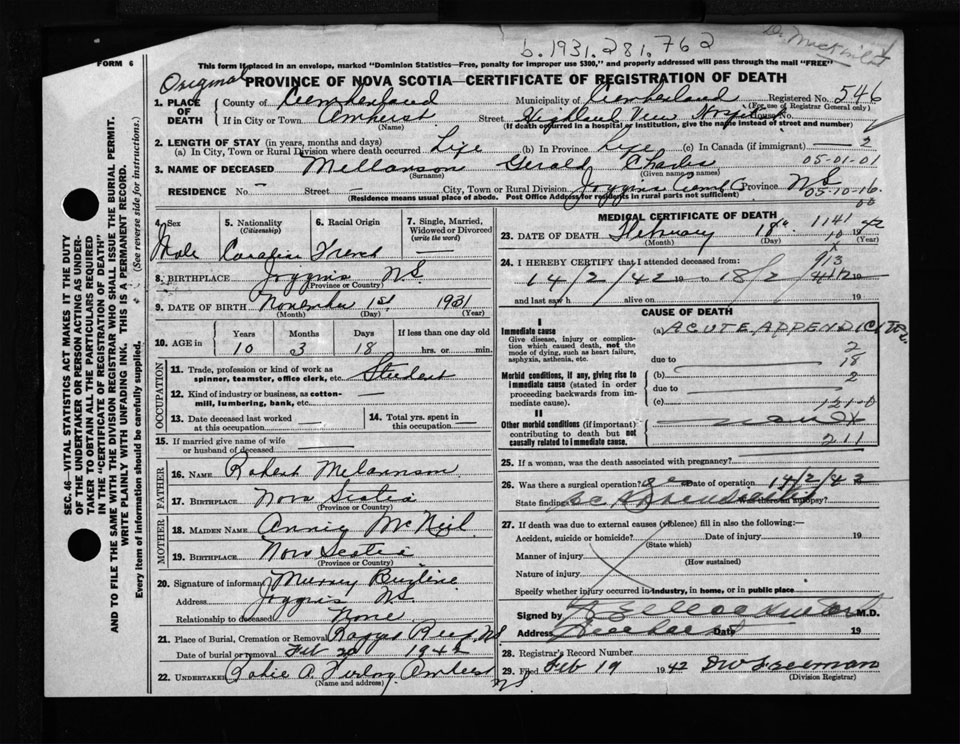 b. 1931. 281. 762
FORM 6
This form if placed in an envelope, marked "Dominion Statistics—Free, penalty for improper use $300," and properly addressed will pass through the mail "FREE"
Original
PROVINCE OF NOVA SCOTIA—CERTIFICATE OF REGISTRATION OF DEATH
SEC. 46—VITAL STATISTICS ACT MAKES IT THE DUTY
OF THE UNDERTAKER OR PERSON ACTING AS UNDER-
TAKER TO OBTAIN ALL THE PARTICULARS REQUIRED
IN THE "CERTIFICATE OF REGISTRATION OF DEATH"
AND TO FILE THE SAME WITH THE DIVISION REGISTRAR WHO SHALL ISSUE THE BURIAL PERMIT.
WRITE PLAINLY WITH UNFADING INK. THIS IS A PERMANENT RECORD.
Every item of information should be carefully supplied. (See reverse side for instructions.)
1. PLACE OF DEATH County of Cumberland Municipality of Cumberland Registered No. 546
(For use of Registrar General only)
If in City or Town Amherst Street Highland View Hospital House No.
(Name) (If death occurred in a hospital or institution, give the name instead of street and number)
2. LENGTH OF STAY (in years, months and days)
(a) In City, Town or Rural Division where death occurred Life (b) In Province Life (c) In Canada (if immigrant) — 2
05-01-01
3. NAME OF DECEASED Mellanson Gerald Charles
(Surname) (Given name or names)
RESIDENCE No. — Street — City, Town or Rural Division Joggins Cumb Co Province NS
05-10-16
(Residence means usual place of abode. Post Office Address for residents in rural parts not sufficient)
00
4. Sex Male
5. Nationality (Citizenship) Canadian
6. Racial Origin French
7. Single, Married, Widowed or Divorced (write the word) —
8. BIRTHPLACE Joggins NS
(Province or Country)
9. DATE OF BIRTH November 1st 1931
(Month) (Day) (Year)
10. AGE in Years Months Days If less than one day old
10 3 18 hrs. or min.
OCCUPATION
11. Trade, profession or kind of work as spinner, teamster, office clerk, etc. Student
12. Kind of industry or business, as cotton-mill, lumbering, bank, etc. —
13. Date deceased last worked at this occupation —
14. Total yrs. spent in this occupation —
15. If married give name of wife or husband of deceased —
FATHER
16. NAME Robert Melanson
17. BIRTHPLACE Nova Scotia
(Province or Country)
MOTHER
18. MAIDEN NAME Annie McNeil
19. BIRTHPLACE Nova Scotia
(Province or Country)
20. Signature of informant Murray
Address Joggins NS.
Relationship to deceased None
21. Place of Burial, Cremation or Removal Ragged Reef, NS
Date of burial or removal Feb 20 1942
22. UNDERTAKER Furlong Amherst
(Name and address) NS
MEDICAL CERTIFICATE OF DEATH
23. DATE OF DEATH February 18th 1942
(Month) (Day) (Year)
1141
10
24. I HEREBY CERTIFY that I attended deceased from:
x
913
14/2/42 19 to 18/2/42 19
and last saw h alive on 19
CAUSE OF DEATH
I
Immediate cause (a) ACUTE APPENDICITIS
Give disease, injury or complication which caused death, not the mode of dying, such as heart failure, asphyxia, asthenia, etc.
2
due to
18
Morbid conditions, if any, giving rise to immediate cause (stated in order proceeding backwards from immediate cause).
(b)
2
due to
(c)
121-0
II
Other morbid conditions (if important) contributing to death but not causally related to immediate cause.
211
25. If a woman, was the death associated with pregnancy?
26. Was there a surgical operation? Date of operation 14/2/42
State findings Was there an autopsy?
27. If death was due to external causes (violence) fill in also the following:—
Accident, suicide or homicide? Date of injury 19
(State which)
Manner of injury
(How sustained)
Nature of injury
Specify whether injury occurred in industry, in home, or in public place
Signed by M.D.
Address Amherst Date 19
28. Registrar's Record Number
29. Filed Feb 19 1942 DW Freeman
(Division Registrar)